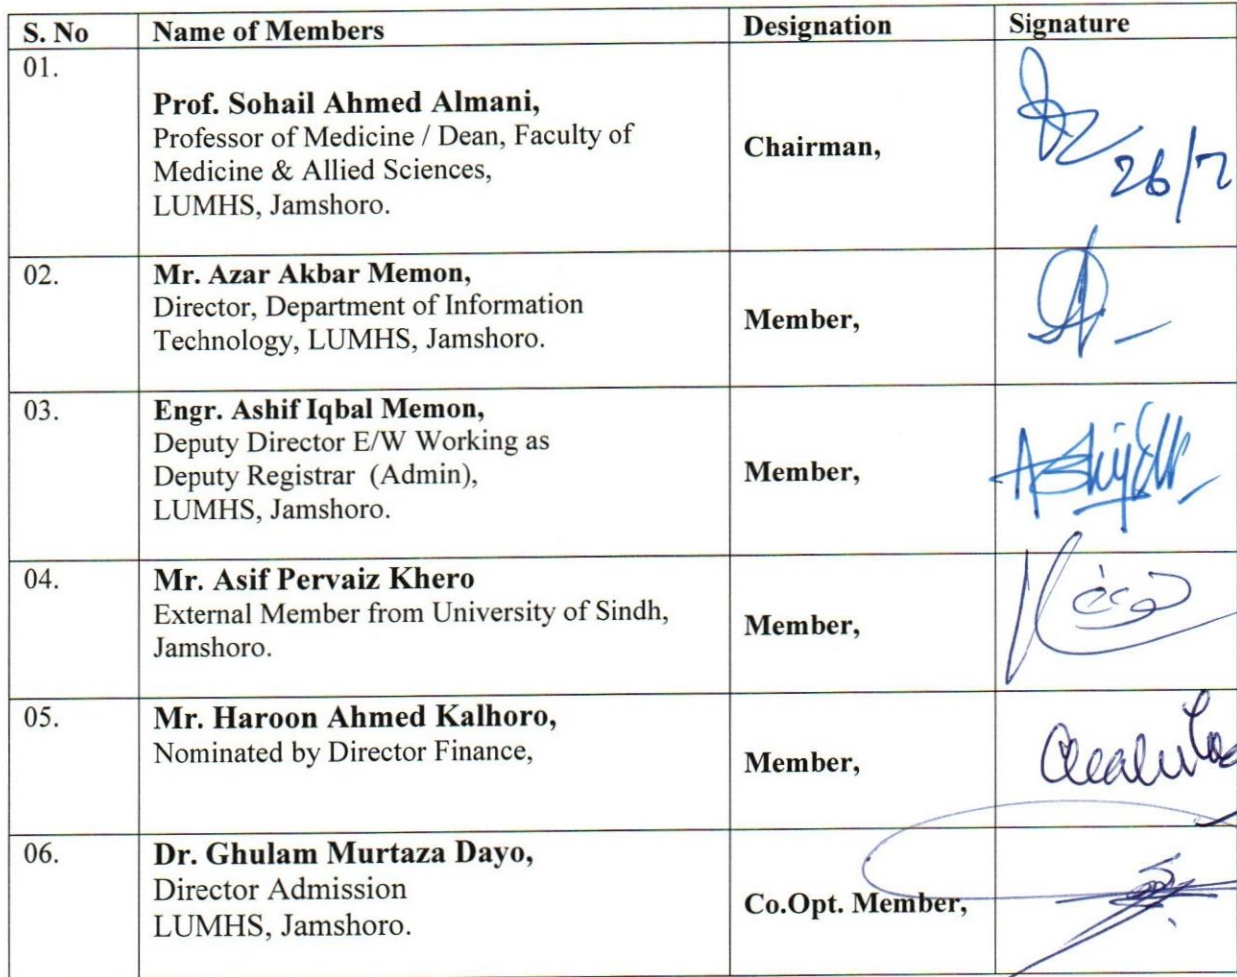 S. No Name of Members Designation Signature
01.
Prof. Sohail Ahmed Almani,
Professor of Medicine / Dean, Faculty of
Medicine & Allied Sciences,
LUMHS, Jamshoro.
Chairman,
26/7
02.
Mr. Azar Akbar Memon,
Director, Department of Information
Technology, LUMHS, Jamshoro.
Member,
03.
Engr. Ashif Iqbal Memon,
Deputy Director E/W Working as
Deputy Registrar (Admin),
LUMHS, Jamshoro.
Member,
04.
Mr. Asif Pervaiz Khero
External Member from University of Sindh,
Jamshoro.
Member,
05.
Mr. Haroon Ahmed Kalhoro,
Nominated by Director Finance,
Member,
06.
Dr. Ghulam Murtaza Dayo,
Director Admission
LUMHS, Jamshoro.
Co.Opt. Member,